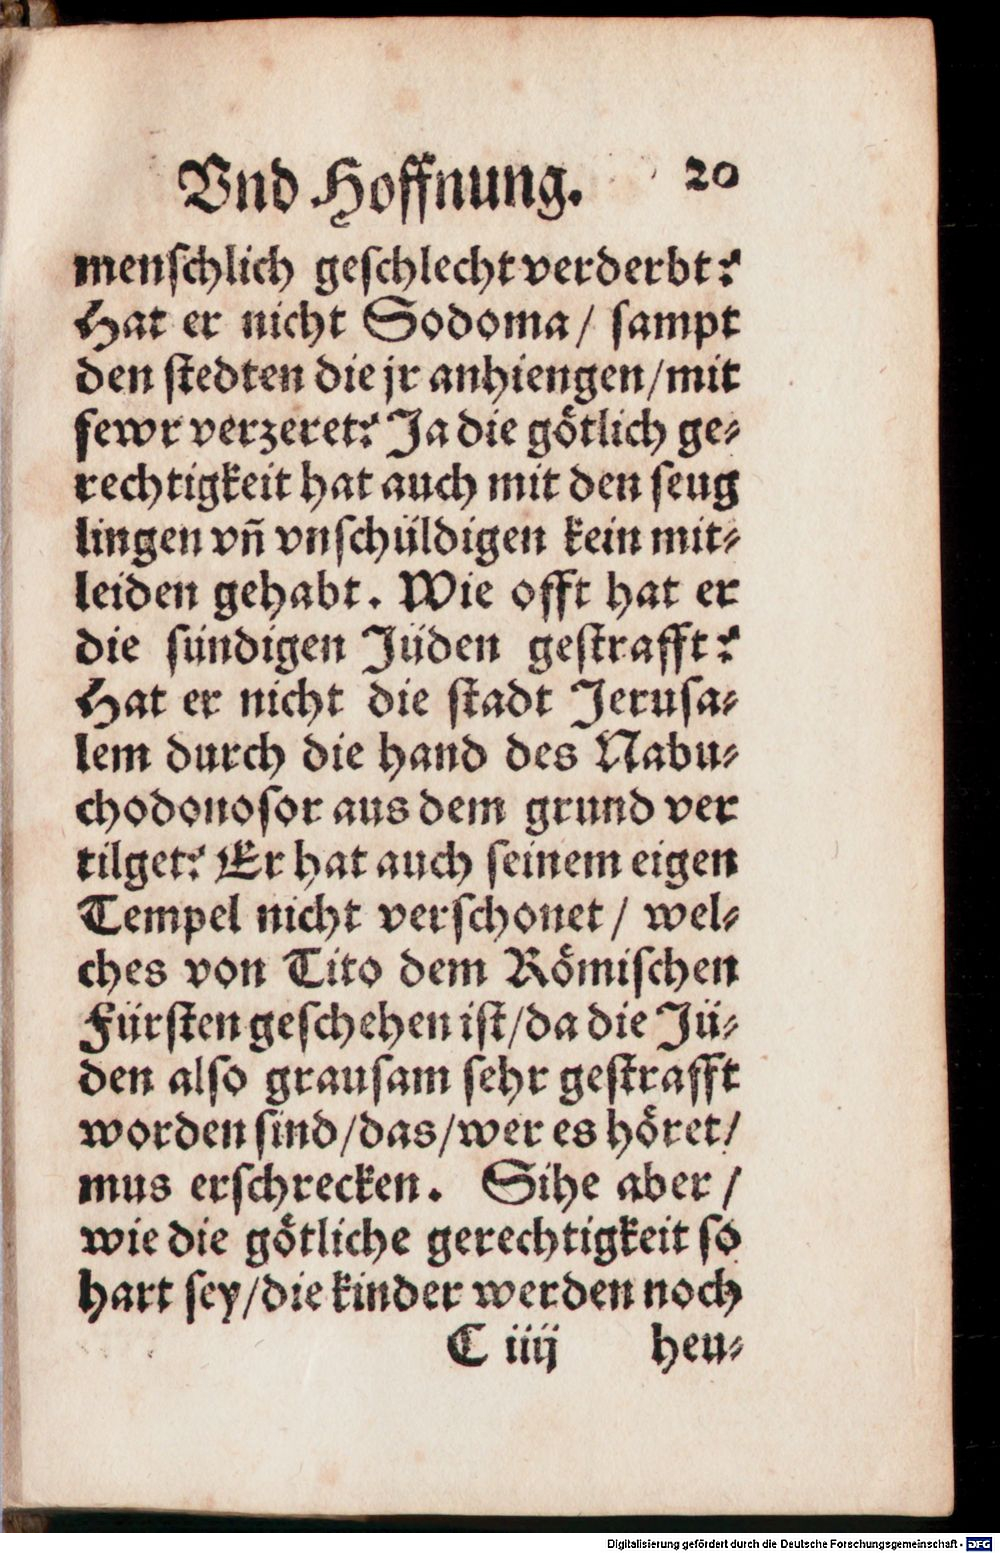 Vnd Hoffnung. 20
menschlich geschlecht verderbt?
Hat er nicht Sodoma / sampt
den stedten die jr anhiengen / mit
fewr verzeret? Ja die götlich ge-
rechtigkeit hat auch mit den seug
lingen vñ vnschüldigen kein mit-
leiden gehabt. Wie offt hat er
die sündigen Jüden gestrafft?
Hat er nicht die stadt Jerusa-
lem durch die hand des Nabu-
chodonosor aus dem grund ver
tilget? Er hat auch seinem eigen
Tempel nicht verschonet / wel-
ches von Tito dem Römischen
Fürsten geschehen ist / da die Jü-
den also grausam sehr gestrafft
worden sind / das / wer es höret /
mus erschrecken. Sihe aber /
wie die götliche gerechtigkeit so
hart sey / die kinder werden noch
C iiij heu-
Digitalisierung gefördert durch die Deutsche Forschungsgemeinschaft - DFG